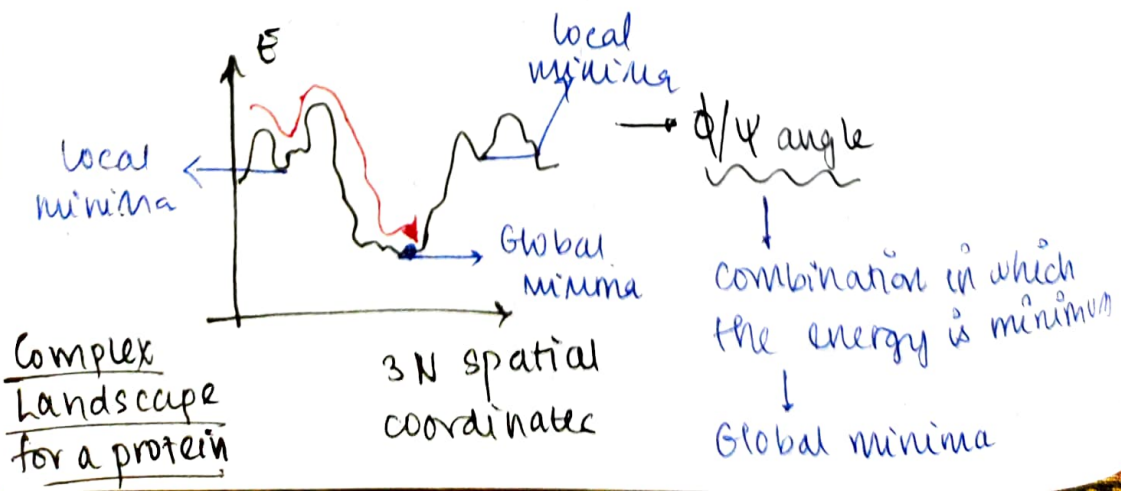 E
local
minima
local
minima
Global
minima
3N spatial
coordinates
Complex
Landscape
for a protein
ϕ/ψ angle
combination in which
the energy is minimum
Global minima